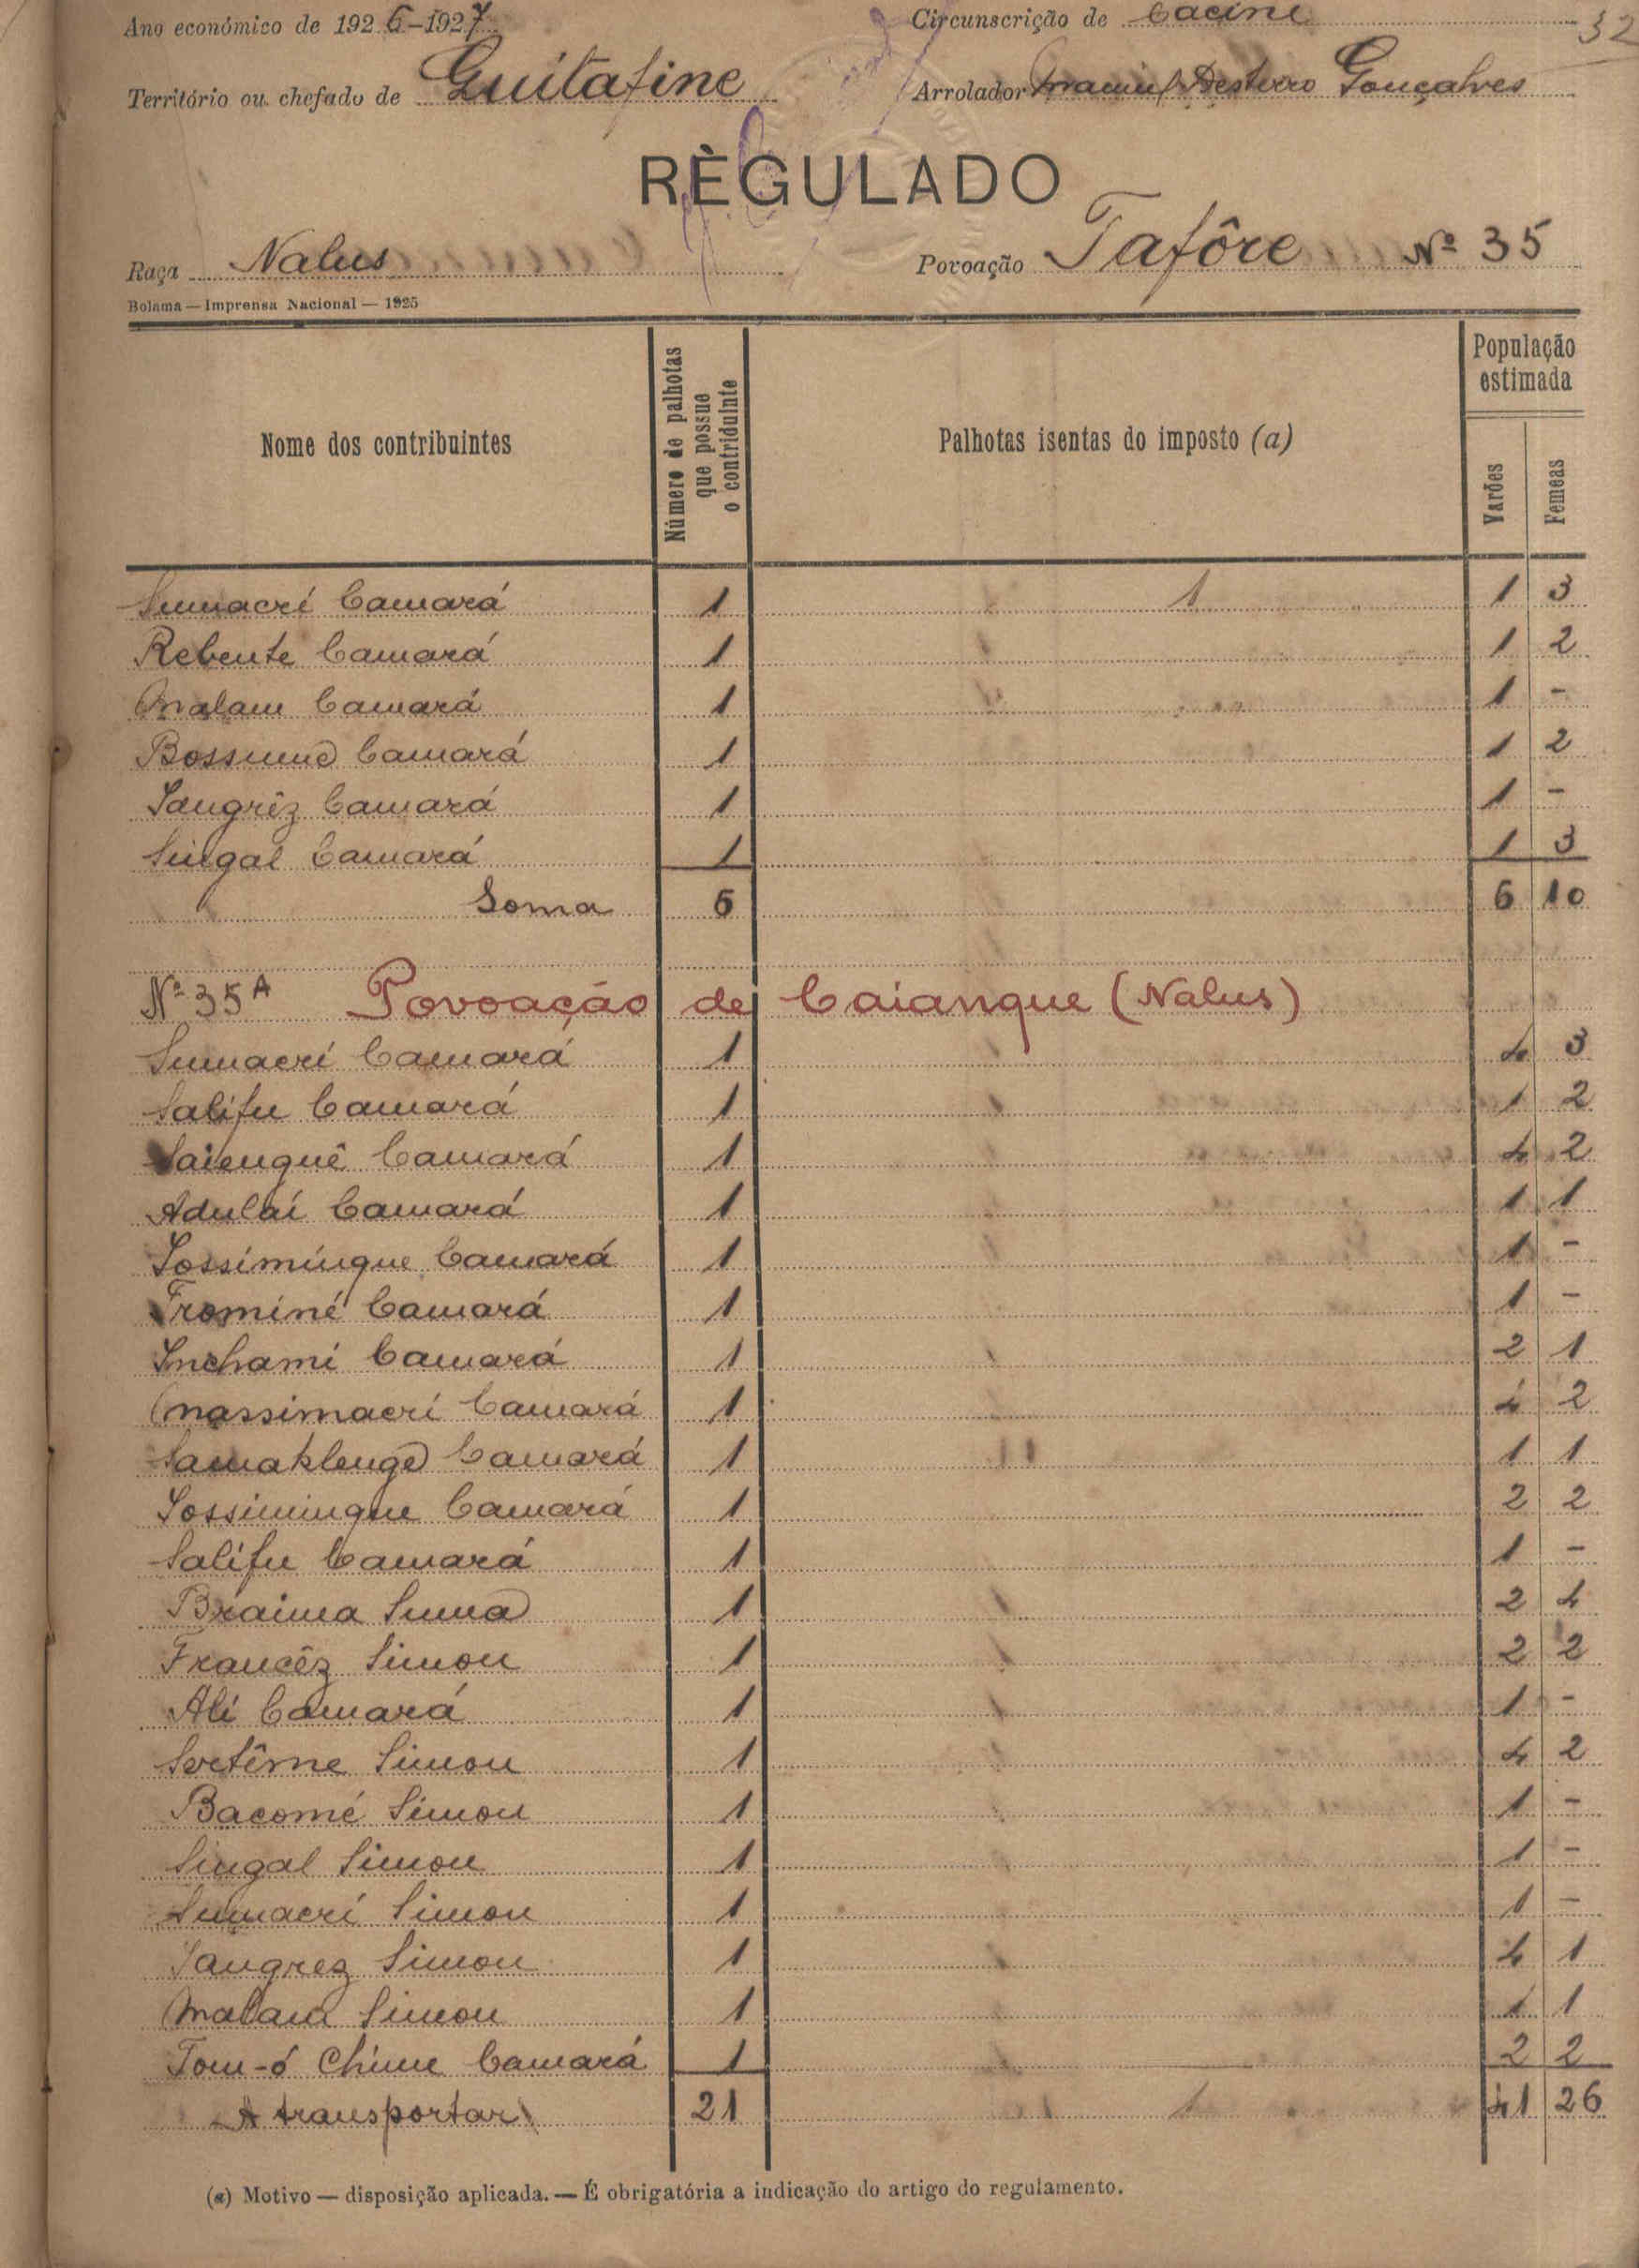 32
Ano económico de 1926-1927
Circunscrição de Cacine
Território ou chefado de Guitafine
Arrolador Manuel Desterro Gonçalves
RÈGULADO
Raça Nalus
Povoação Tafôre Nº 35
Bolama — Imprensa Nacional — 1925
Nome dos contribuintes
Número de palhotas que possue o contriduinte
Palhotas isentas do imposto (a)
População estimada
Varões
Femeas
Sumacrí Camará 1 1 1 3
Rebente Camará 1 1 2
Malam Camará 1 1 -
Camará 1 1 2
Sangrêz Camará 1 1 -
Singal Camará 1 1 3
Soma 6 6 10
Nº 35 A Povoação de Caianque (Nalus)
Sumacrí Camará 1 4 3
Salifu Camará 1 1 2
Saienguê Camará 1 4 2
Adulai Camará 1 1 1
Sossimingue Camará 1 1 -
Frominé Camará 1 1 -
Inchami Camará 1 2 1
Massimacrí Camará 1 4 2
Camará 1 1 1
Sossimingue Camará 1 2 2
Salifu Camará 1 1 -
Braima Suma 1 2 4
Francêz Simon 1 2 2
Ali Camará 1 1 -
Simon 1 4 2
Bacomé Simon 1 1 -
Singal Simon 1 1 -
Sumacrí Simon 1 1 -
Sangrez Simon 1 4 1
Malam Simon 1 1 1
Tom-ó Chime Camará 1 2 2
A transportar 21 1 41 26
(a) Motivo — disposição aplicada. — É obrigatória a indicação do artigo do regulamento.